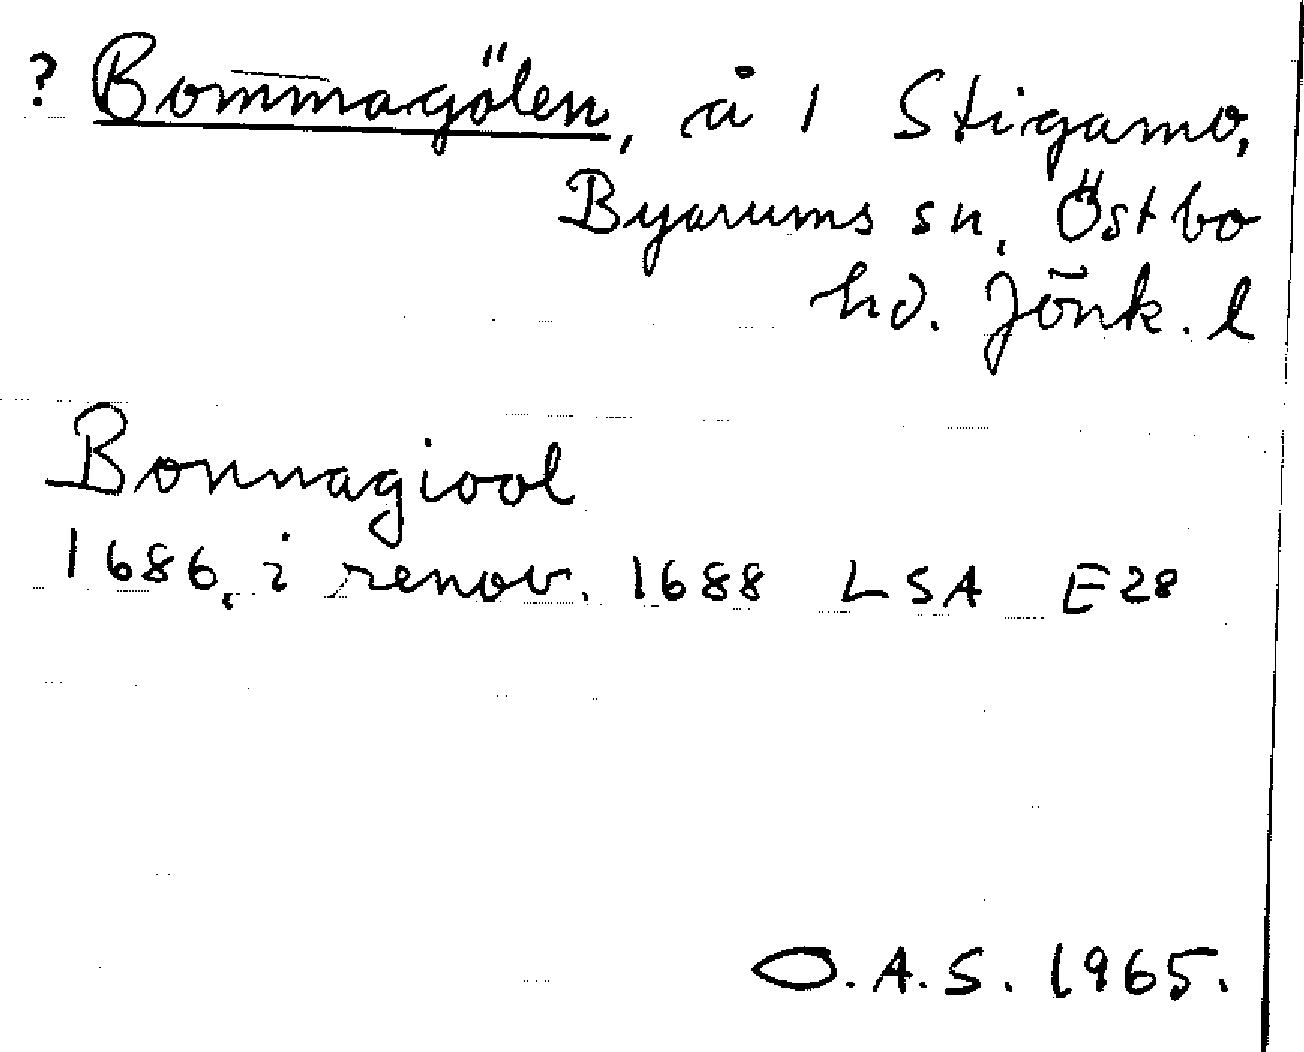 ? Bommagölen, å 1 Stigamo,
Byarums sn, Östbo
hd. Jönk. l
Bonnagiool
1686, i renov. 1688 LSA E28
O.A.S. 1965.